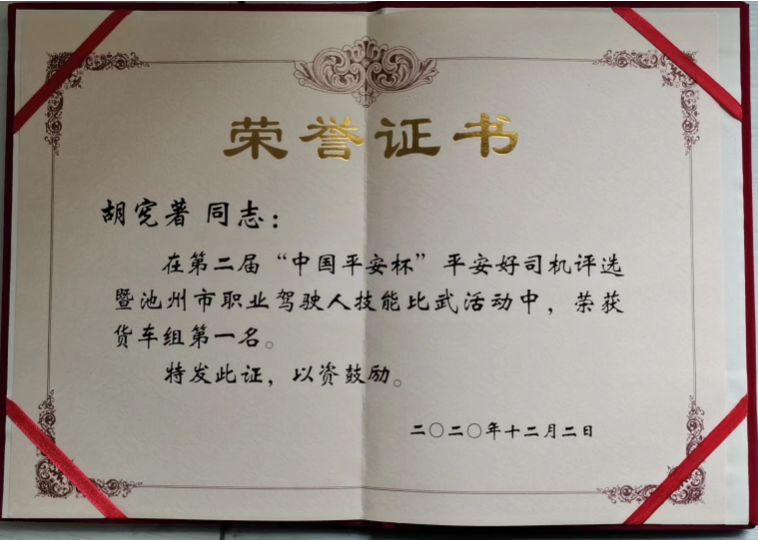 荣誉证书
胡宪著 同志：
在第二届“中国平安杯”平安好司机评选
暨池州市职业驾驶人技能比武活动中，荣获
货车组第一名。
特发此证，以资鼓励。
二〇二〇年十二月二日